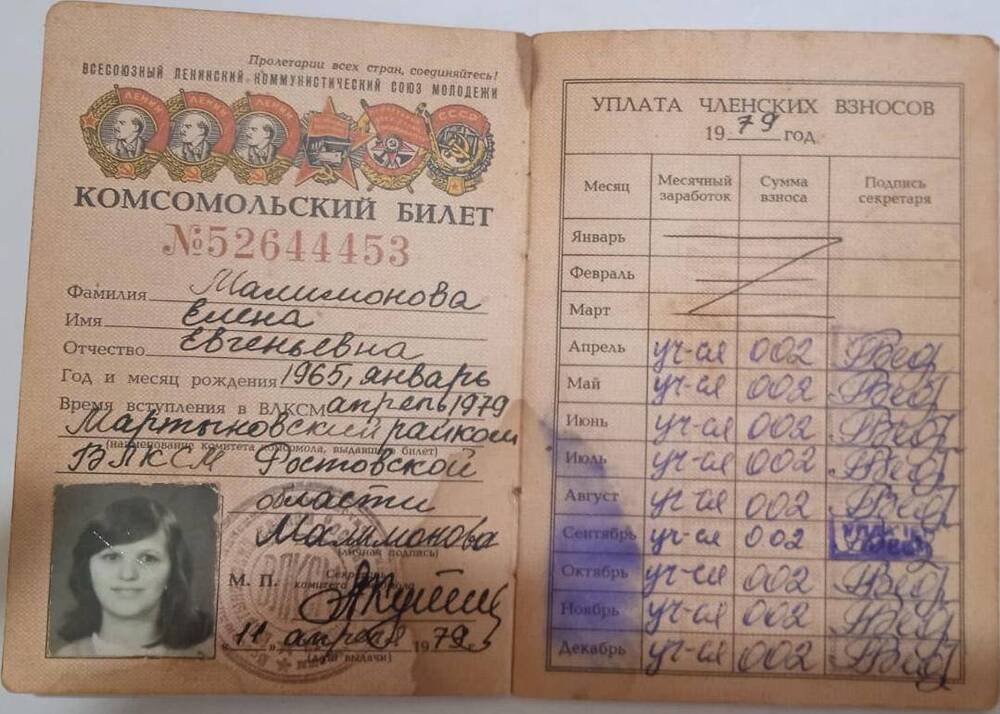 Пролетарии всех стран, соединяйтесь!
ВСЕСОЮЗНЫЙ ЛЕНИНСКИЙ КОММУНИСТИЧЕСКИЙ СОЮЗ МОЛОДЕЖИ
ЛЕНИН ЛЕНИН ЛЕНИН СССР
КОМСОМОЛЬСКИЙ БИЛЕТ
№52644453
Фамилия Малимонова
Имя Елена
Отчество Евгеньевна
Год и месяц рождения 1965, январь
Время вступления в ВЛКСМ апрель 1979
Мартыновский райком
(наименование комитета комсомола, выдавшего билет)
ВЛКСМ Ростовской
области
Малимонова
(личная подпись)
М. П. Секретарь
комитета комсомола
„11„ апреля 1979
(дата выдачи)
УПЛАТА ЧЛЕНСКИХ ВЗНОСОВ
1979 год
Месяц Месячный заработок Сумма взноса Подпись секретаря
Январь
Февраль
Март
Апрель уч-ся 002
Май уч-ся 002
Июнь уч-ся 002
Июль уч-ся 002
Август уч-ся 002
Сентябрь уч-ся 002
Октябрь уч-ся 002
Ноябрь уч-ся 002
Декабрь уч-ся 002